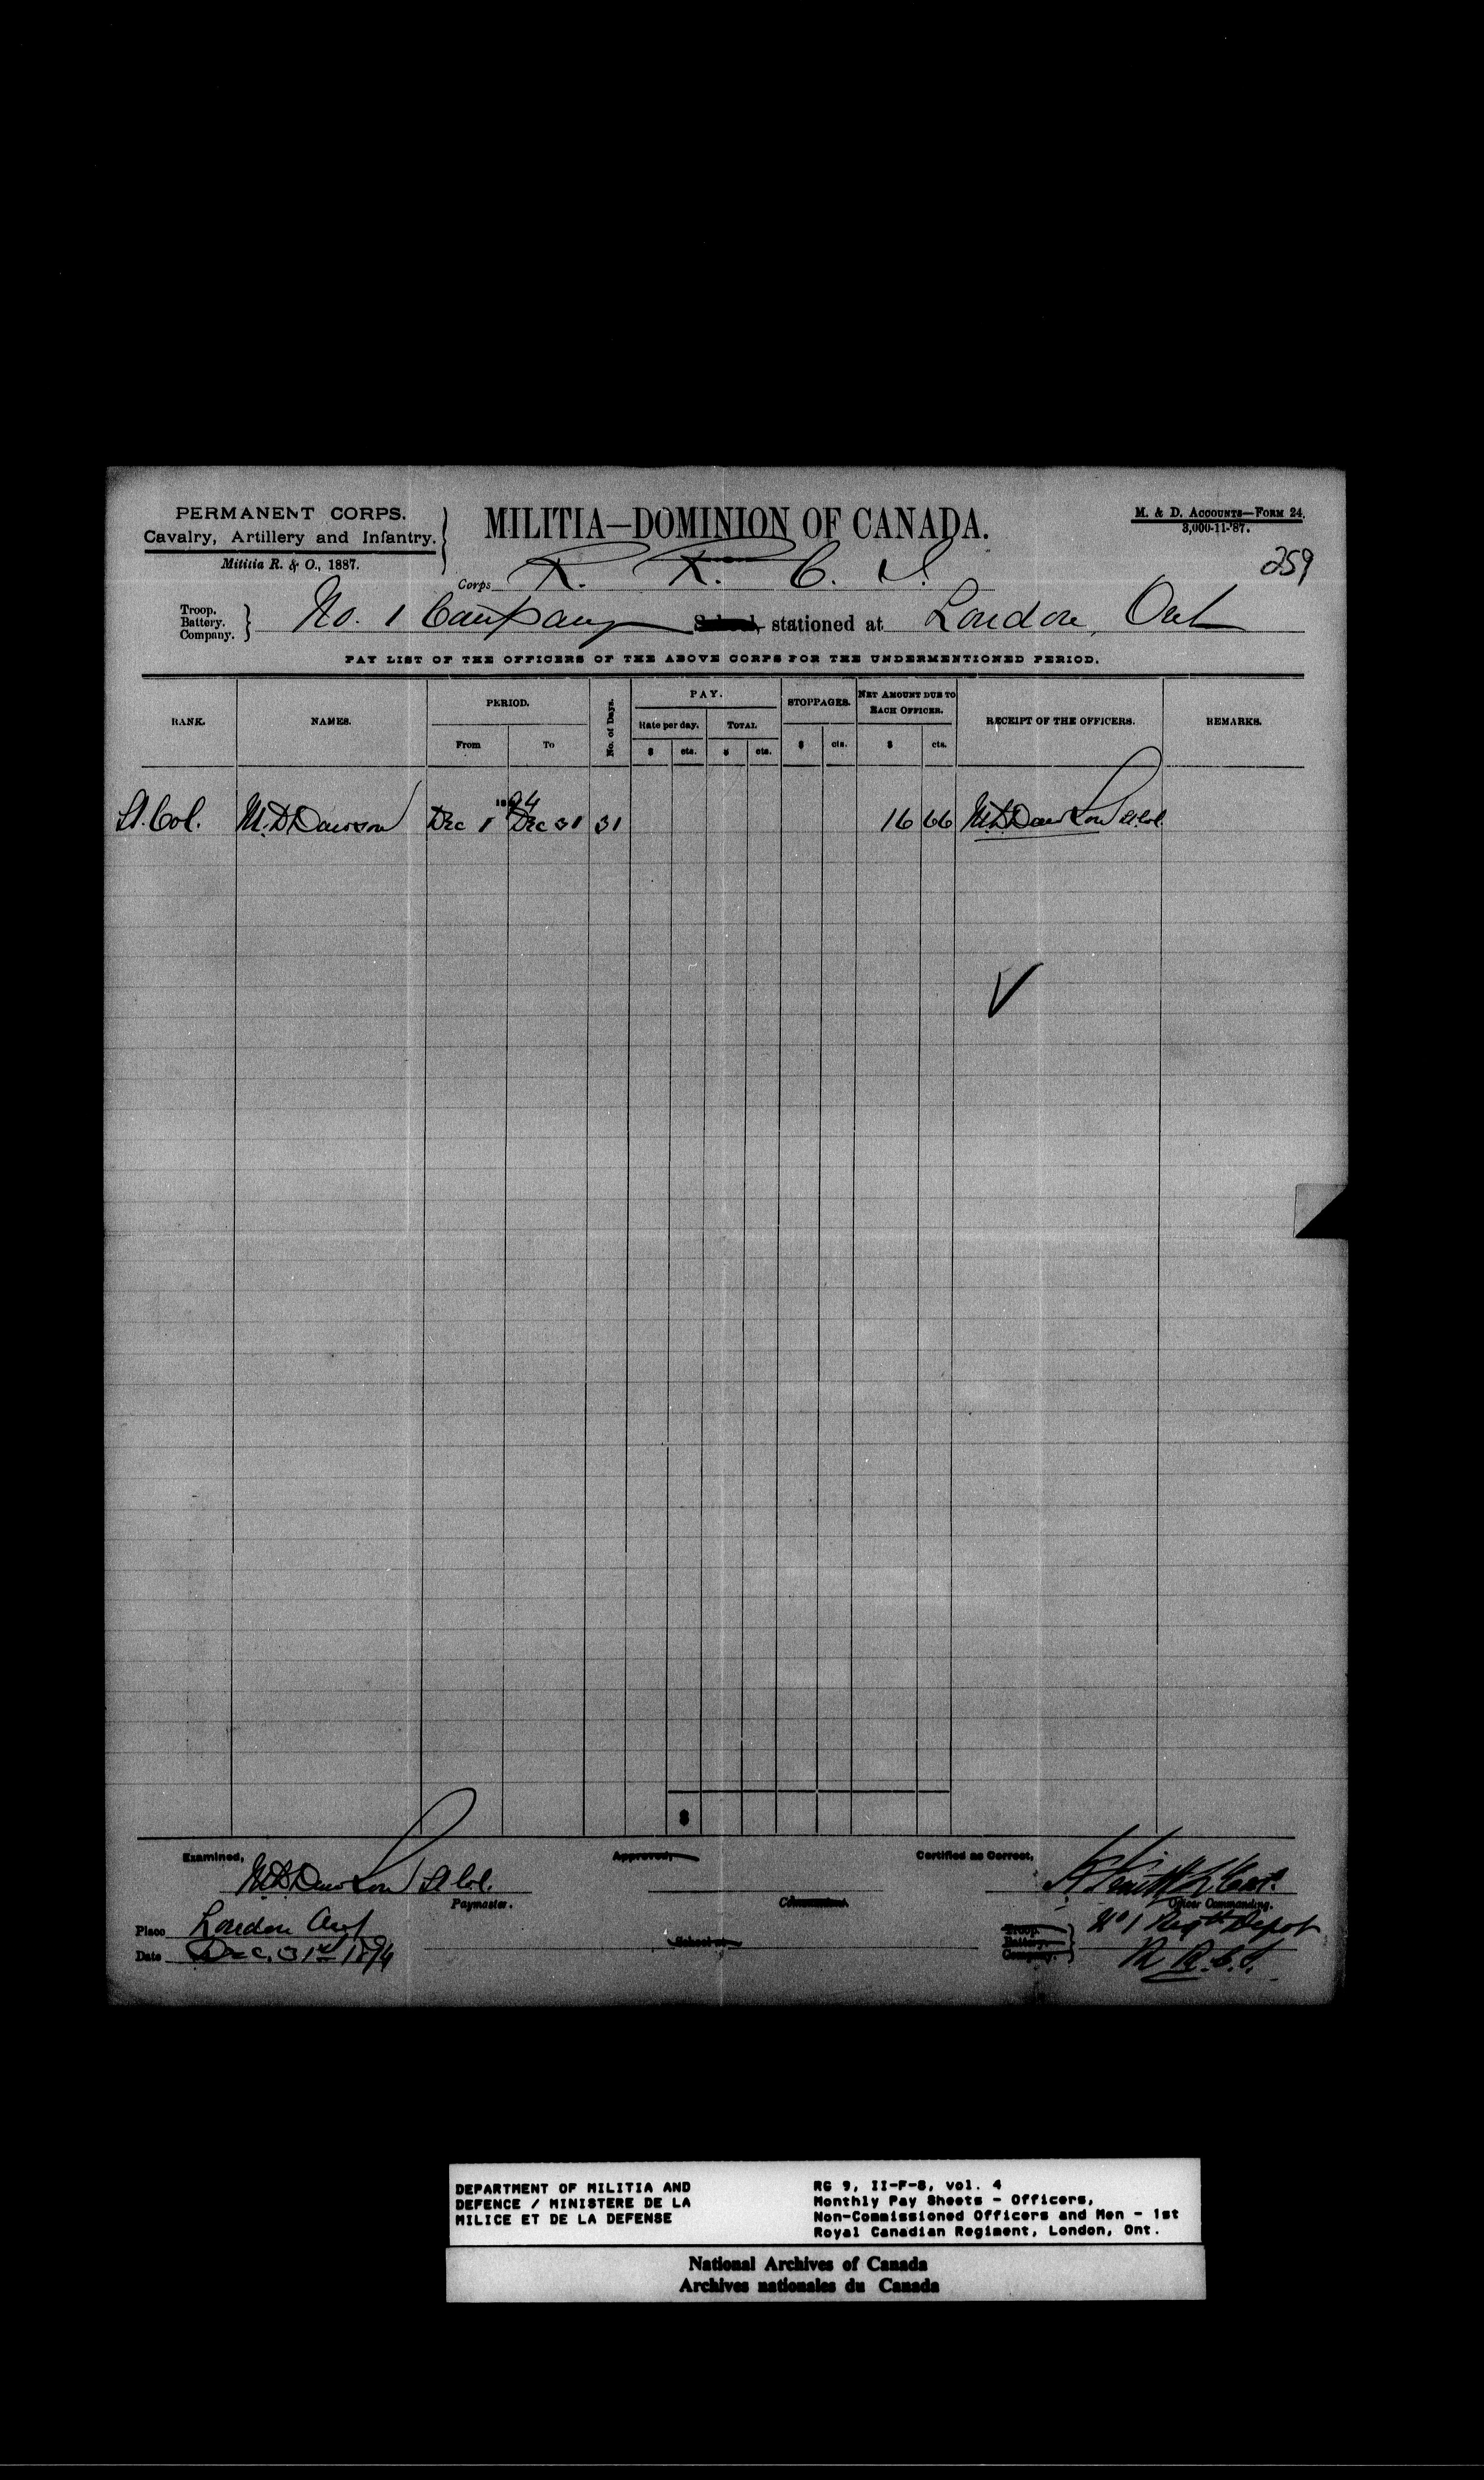 PERMANENT CORPS.
Cavalry, Artillery and Infantry.
Militia R. & O., 1887.
MILITIA—DOMINION OF CANADA.
M. & D. Accounts—Form 24.
3,000-11-'87.
259
Corps R. R. C. I.
Troop.
Battery.
Company.
No. 1 Company School, stationed at London, Ont
PAY LIST OF THE OFFICERS OF THE ABOVE CORPS FOR THE UNDERMENTIONED PERIOD.
RANK. NAMES. PERIOD. From To No. of Days. PAY. Rate per day. $ cts. TOTAL $ cts. STOPPAGES. $ cts. NET AMOUNT DUE TO EACH OFFICER. $ cts. RECEIPT OF THE OFFICERS. REMARKS.
1894
Lt. Col. M. D Dawson Dec 1 Dec 31 31 16 66 M. D Dawson Lt Col.
$
Examined, Approved, Certified as Correct,
M. D Dawson Lt Col. Capt.
Paymaster. Commandant. Officer Commanding.
Place London Ont
School at
Troop.
Battery.
Company.
No 1 Regtl Depot
Date Dec. 31st 1894
R. R. C. I.
DEPARTMENT OF MILITIA AND
DEFENCE / MINISTERE DE LA
MILICE ET DE LA DEFENSE
RG 9, II-F-8, vol. 4
Monthly Pay Sheets - Officers,
Non-Commissioned Officers and Men - 1st
Royal Canadian Regiment, London, Ont.
National Archives of Canada
Archives nationales du Canada